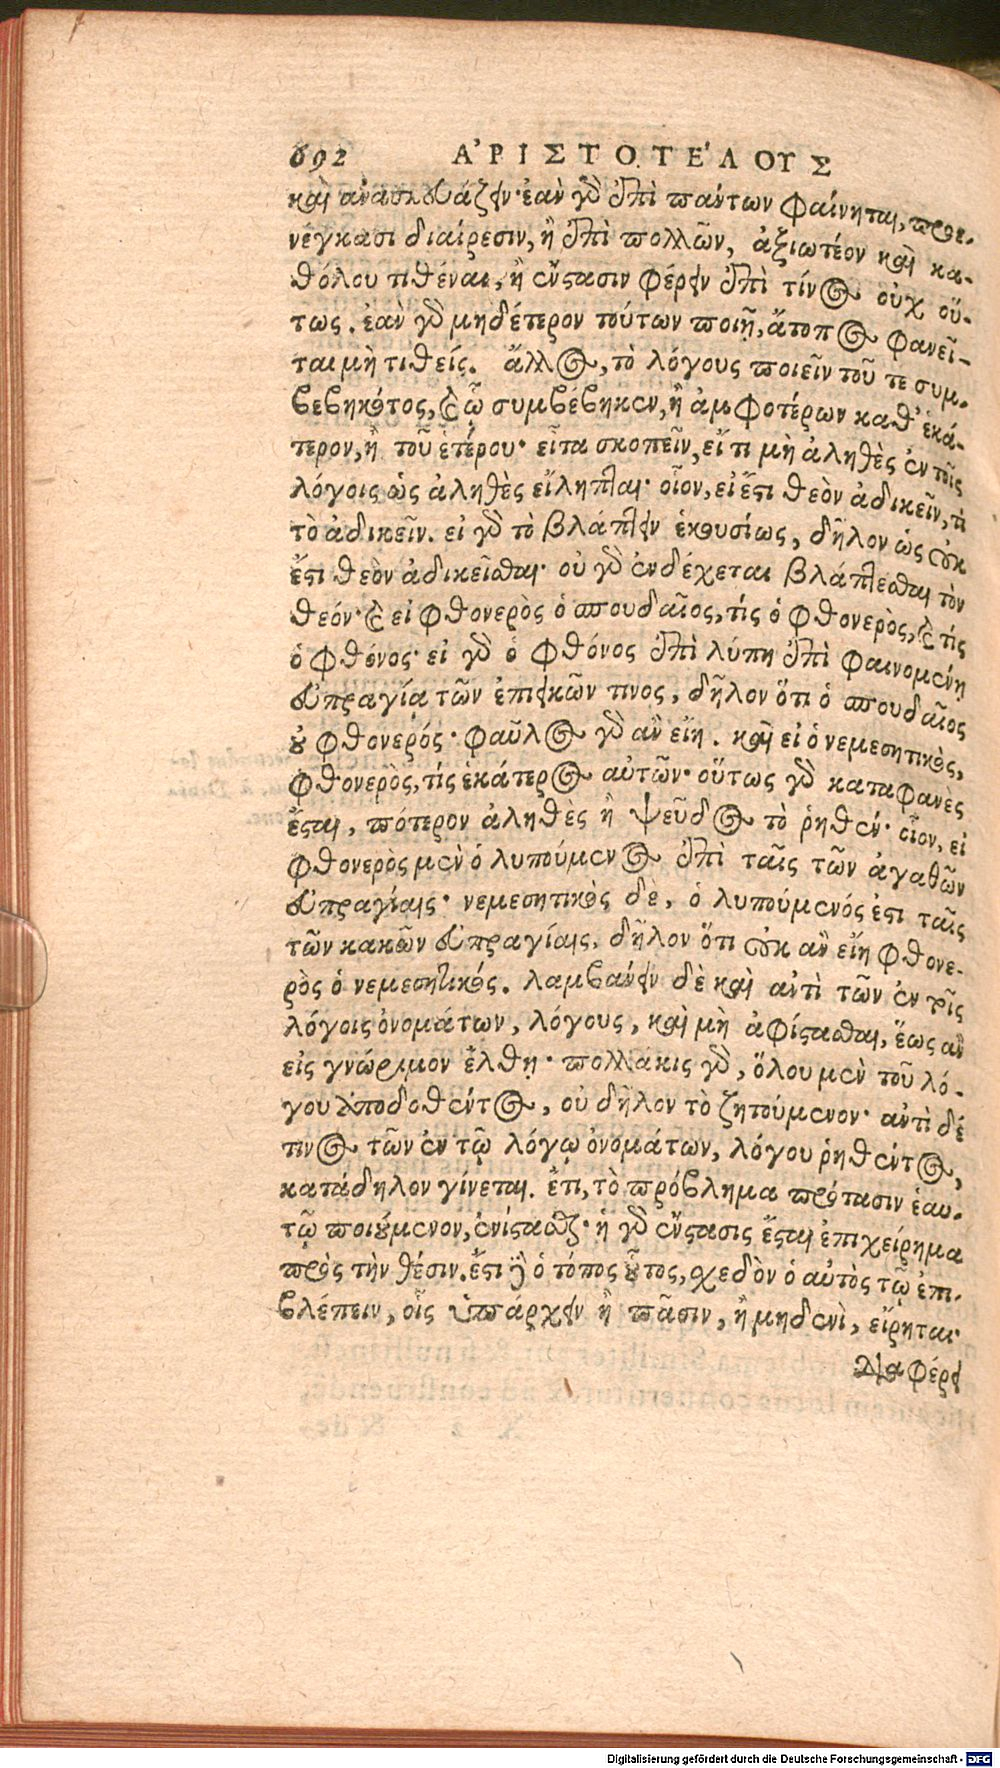 692 ΑʼΡΙΣΤΟΤΕʹΛΟΥΣ
καὶ ἀνασκευάζειν· ἐὰν γὰρ ἐπὶ πάντων φαίνηται, προε-
νέγκασι διαίρεσιν, ἢ ἐπὶ πολλῶν, ἀξιωτέον καὶ κα-
θόλου τιθέναι, ἢ ἔνστασιν φέρειν ἐπὶ τίνος οὐχ οὕ-
τως. ἐὰν γὰρ μηδέτερον τούτων ποιῇ, ἄτοπος φανεῖ-
ται μὴ τιθείς. ἄλλος, τὸ λόγους ποιεῖν τοῦ τε συμ-
βεβηκότος, καὶ ᾧ συμβέβηκεν, ἢ ἀμφοτέρων καθ' ἑκά-
τερον, ἢ τοῦ ἑτέρου· εἶτα σκοπεῖν, εἴ τι μὴ ἀληθὲς ἐν τοῖς
λόγοις ὡς ἀληθὲς εἴληπται· οἷον, εἰ ἔστι θεὸν ἀδικεῖν, τὶ
τὸ ἀδικεῖν. εἰ γὰρ τὸ βλάπτειν ἑκουσίως, δῆλον ὡς οὐκ
ἔστι θεὸν ἀδικεῖσθαι· οὐ γὰρ ἐνδέχεται βλάπτεσθαι τὸν
θεόν· καὶ εἰ φθονερὸς ὁ σπουδαῖος, τίς ὁ φθονερὸς, καὶ τίς
ὁ φθόνος· εἰ γὰρ ὁ φθόνος ἐπὶ λύπη ἐπὶ φαινομένῃ
εὐπραγίᾳ τῶν ἐπιεικῶν τινος, δῆλον ὅτι ὁ σπουδαῖος
οὐ φθονερός· φαῦλος γὰρ ἂν εἴη. καὶ εἰ ὁ νεμεσητικὸς,
φθονερὸς, τίς ἑκάτερος αὐτῶν· οὕτως γὰρ καταφανὲς
ἔσται, πότερον ἀληθὲς ἢ ψεῦδος τὸ ῥηθέν· οἷον, εἰ
φθονερὸς μὲν ὁ λυπούμενος ἐπὶ ταῖς τῶν ἀγαθῶν
εὐπραγίαις· νεμεσητικὸς δὲ, ὁ λυπούμενός ἐστι ταῖς
τῶν κακῶν εὐπραγίαις, δῆλον ὅτι οὐκ ἂν εἴη φθονε-
ρὸς ὁ νεμεσητικός. λαμβάνειν δὲ καὶ ἀντὶ τῶν ἐν τοῖς
λόγοις ὀνομάτων, λόγους, καὶ μὴ ἀφίστασθαι, ἕως ἂν
εἰς γνώριμον ἔλθῃ· πολλάκις γὰρ, ὅλου μὲν τοῦ λό-
γου ἀποδοθέντος, οὐ δῆλον τὸ ζητούμενον· ἀντὶ δέ
τινος τῶν ἐν τῷ λόγῳ ὀνομάτων, λόγου ῥηθέντος,
κατάδηλον γίνεται. ἔτι, τὸ πρόβλημα πρότασιν ἑαυ-
τῷ ποιούμενον, ἐνίστασθαι· ἡ γὰρ ἔνστασις ἔσται ἐπιχείρημα
πρὸς τὴν θέσιν. ἔστι δὲ ὁ τόπος οὗτος, σχεδὸν ὁ αὐτὸς τῷ ἐπι-
βλέπειν, οἷς ὑπάρχειν ἢ πᾶσιν, ἢ μηδενὶ, εἴρηται·
διαφέρει
Digitalisierung gefördert durch die Deutsche Forschungsgemeinschaft - DFG